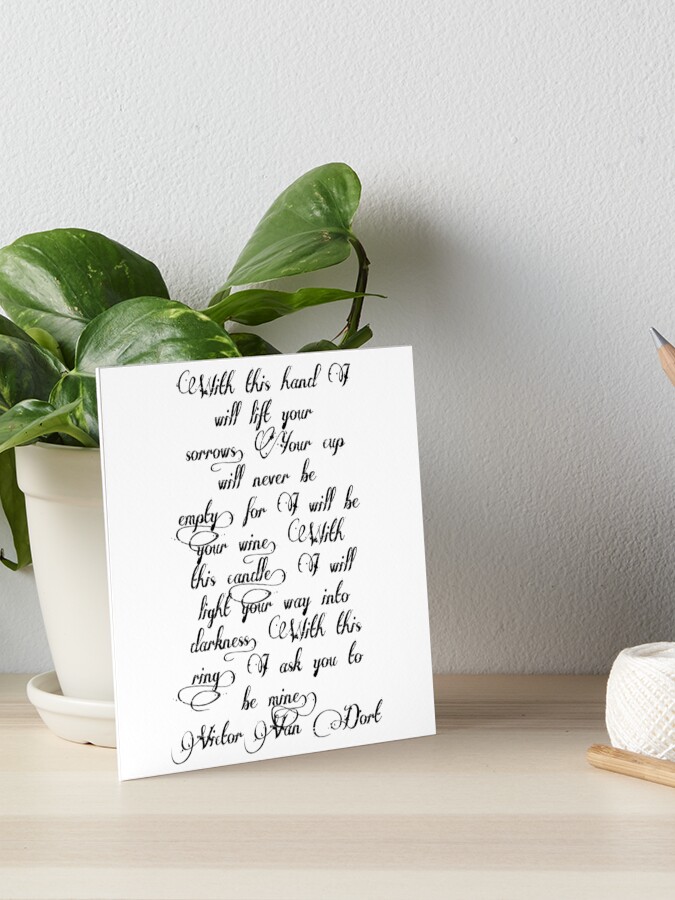 With this hand I
will lift your
sorrows Your cup
will never be
empty for I will be
your wine With
this candle I will
light your way into
darkness With this
ring I ask you to
be mine
Victor Van Dort